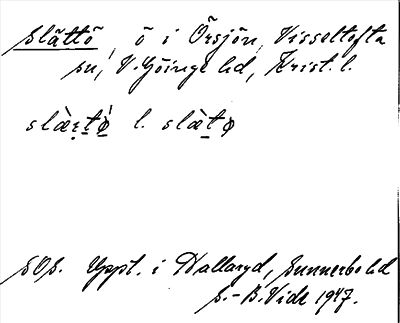 Slättö, ö i Örsjön, Visseltofta
sn, V. Göinge hd, Krist. l.
l. slàtø
SOS. Uppt. i Hallaryd, Sunnerbo hd
S.-B. Vide 1947.